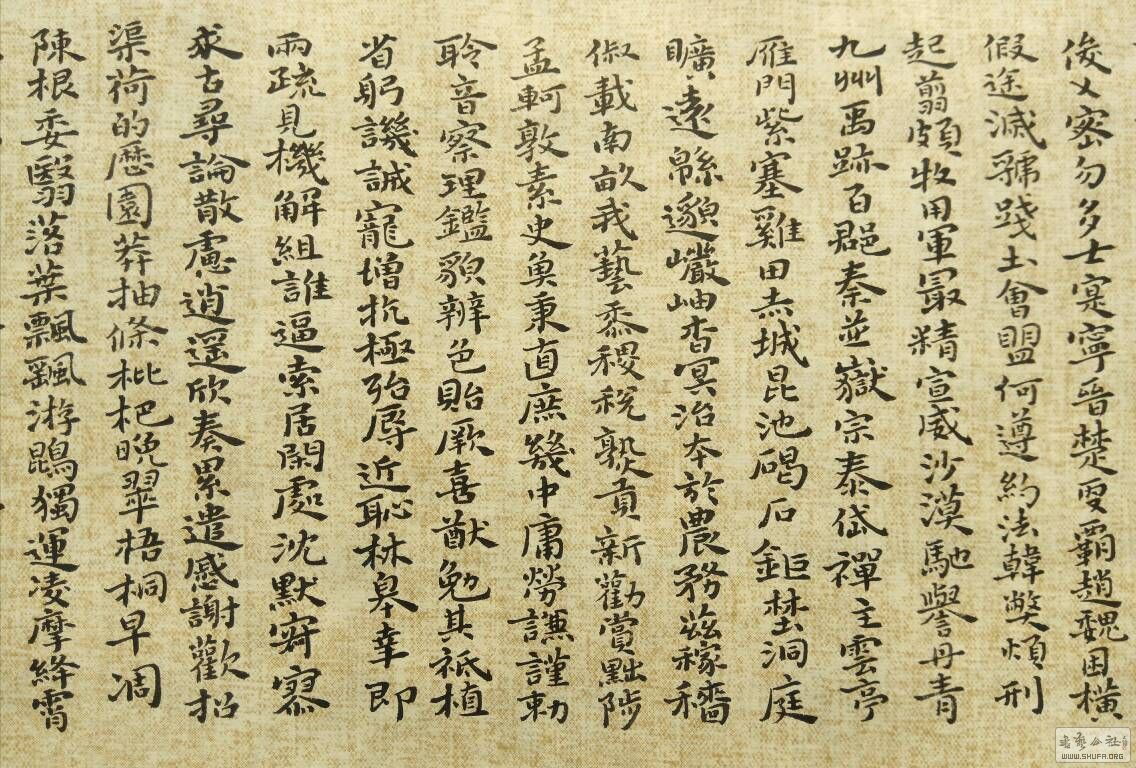 俊乂密勿多士寔寧晉楚更霸趙魏困橫
假途滅虢踐土會盟何遵約法韓獘煩刑
起翦頗牧用軍最精宣威沙漠馳譽丹青
九州禹跡百郡秦並嶽宗泰岱禪主雲亭
雁門紫塞雞田赤城昆池碣石鉅野洞庭
曠遠緜邈巖岫杳冥治本於農務茲稼穡
俶載南畝我藝黍稷稅熟貢新勸賞黜陟
孟軻敦素史魚秉直庶幾中庸勞謙謹勅
聆音察理鑑貌辨色貽厥嘉猷勉其祗植
省躬譏誡寵增抗極殆辱近恥林皋幸即
兩疏見機解組誰逼索居閑處沈默寂寥
求古尋論散慮逍遥欣奏累遣慼謝歡招
渠荷的歷園莽抽條枇杷晚翠梧桐早凋
陳根委翳落葉飄颻游鵾獨運凌摩絳霄
書藝公社
WWW.SHUFA.ORG